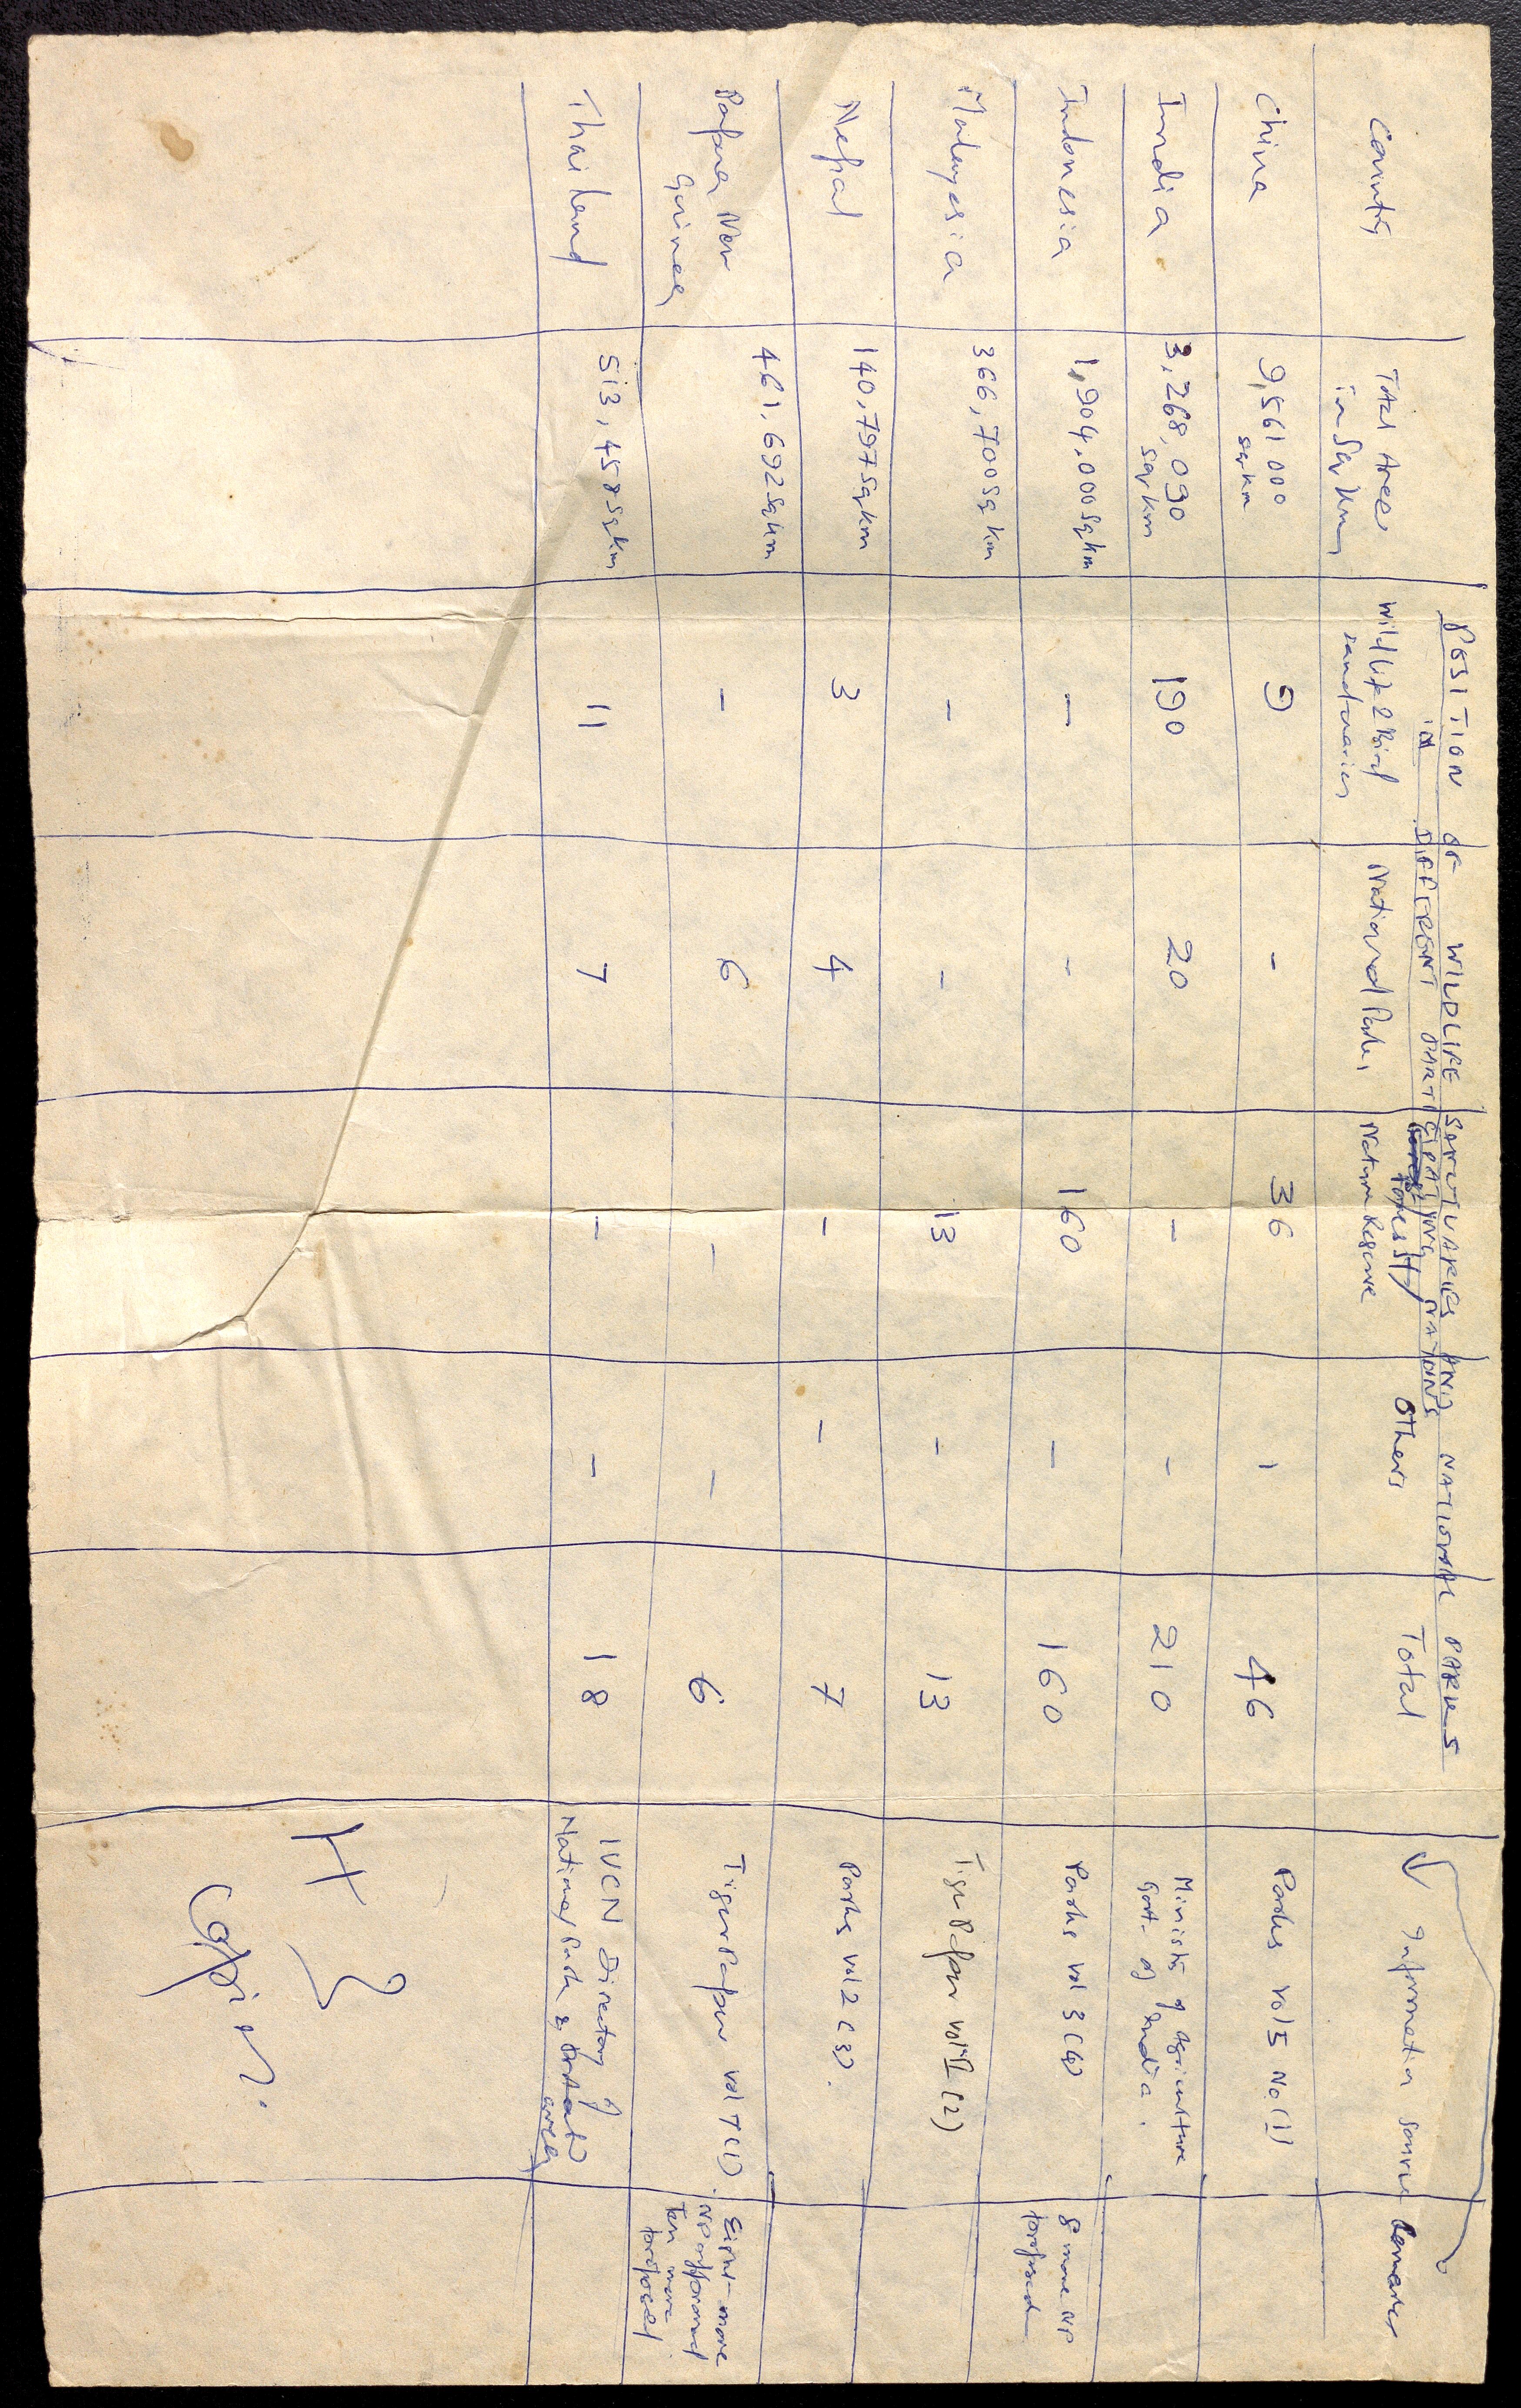 POSITION OF WILDLIFE SANCTUARIES AND NATIONAL PARKS
in DIFFERENT PARTICIPATING NATIONS
Country
Total Area
in Sq km
Wild life & Bird
sanctuaries
National Parks
Forest/
Nature Reserve
Others
Total
Information source
Remarks
China 9,561000 9 - 36 1 46 Parks vol 5 No (1)
sq km
India 3,268,090 190 20 - - 210 Ministry of Agriculture
sq km Govt. of India.
Indonesia 1,904,000 sq km - - 160 - 160 Parks vol 3 (4) 8 more NP
proposed
Malayesia 366,700 sq km - - 13 - 13 Tiger Paper vol II (2)
Nepal 140,797 sq km 3 4 - - 7 Parks vol 2 (3).
Papua New 461,692 sq km - 6 - - 6 Tiger Paper vol 7 (1). Eight more
Guinea NP approved
Ten more
proposed.
Thailand 513,458 sq km 11 7 - - 18 IUCN Directory of
National Park &
area